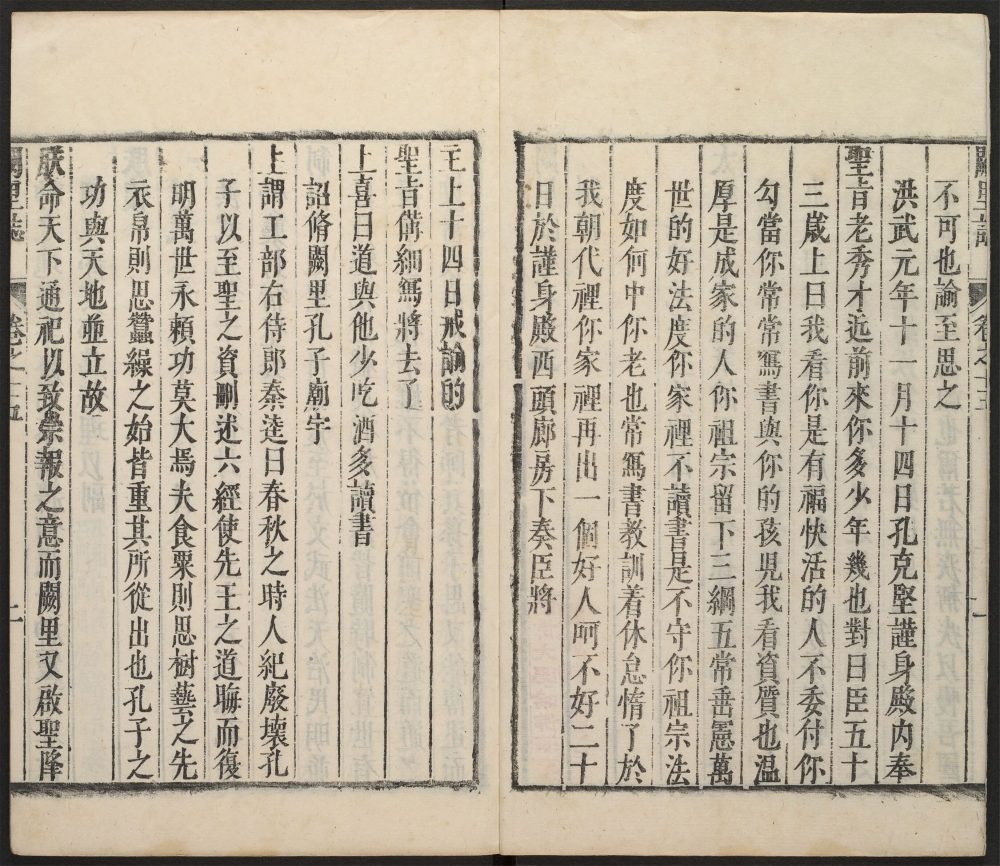 闕里誌 卷之十五 一
不可也諭至思之
洪武元年十一月十四日孔克堅謹身殿内奉
聖旨老秀才近前來你多少年幾也對曰臣五十
三歲上曰我看你是有福快活的人不委付你
勾當你常常寫書與你的孩兒我看資質也温
厚是成家的人你祖宗留下三綱五常垂憲萬
世的好法度你家裡不讀書是不守你祖宗法
度如何中你老也常寫書教訓着休怠惰了於
我朝代裡你家裡再出一個好人呵不好二十
日於謹身殿西頭廊房下奏臣將
主上十四日戒諭的
聖旨備細寫將去了
上喜曰道與他少吃酒多讀書
詔脩闕里孔子廟宇
上謂工部右侍郎秦逵曰春秋之時人紀廢壞孔
子以至聖之資刪述六經使先王之道晦而復
明萬世永賴功莫大焉夫食粟則思樹藝之先
衣帛則思蠶繰之始皆重其所從出也孔子之
功與天地並立故
朕命天下通祀以致崇報之意而闕里又啟聖降
闕里誌 卷之十五 二